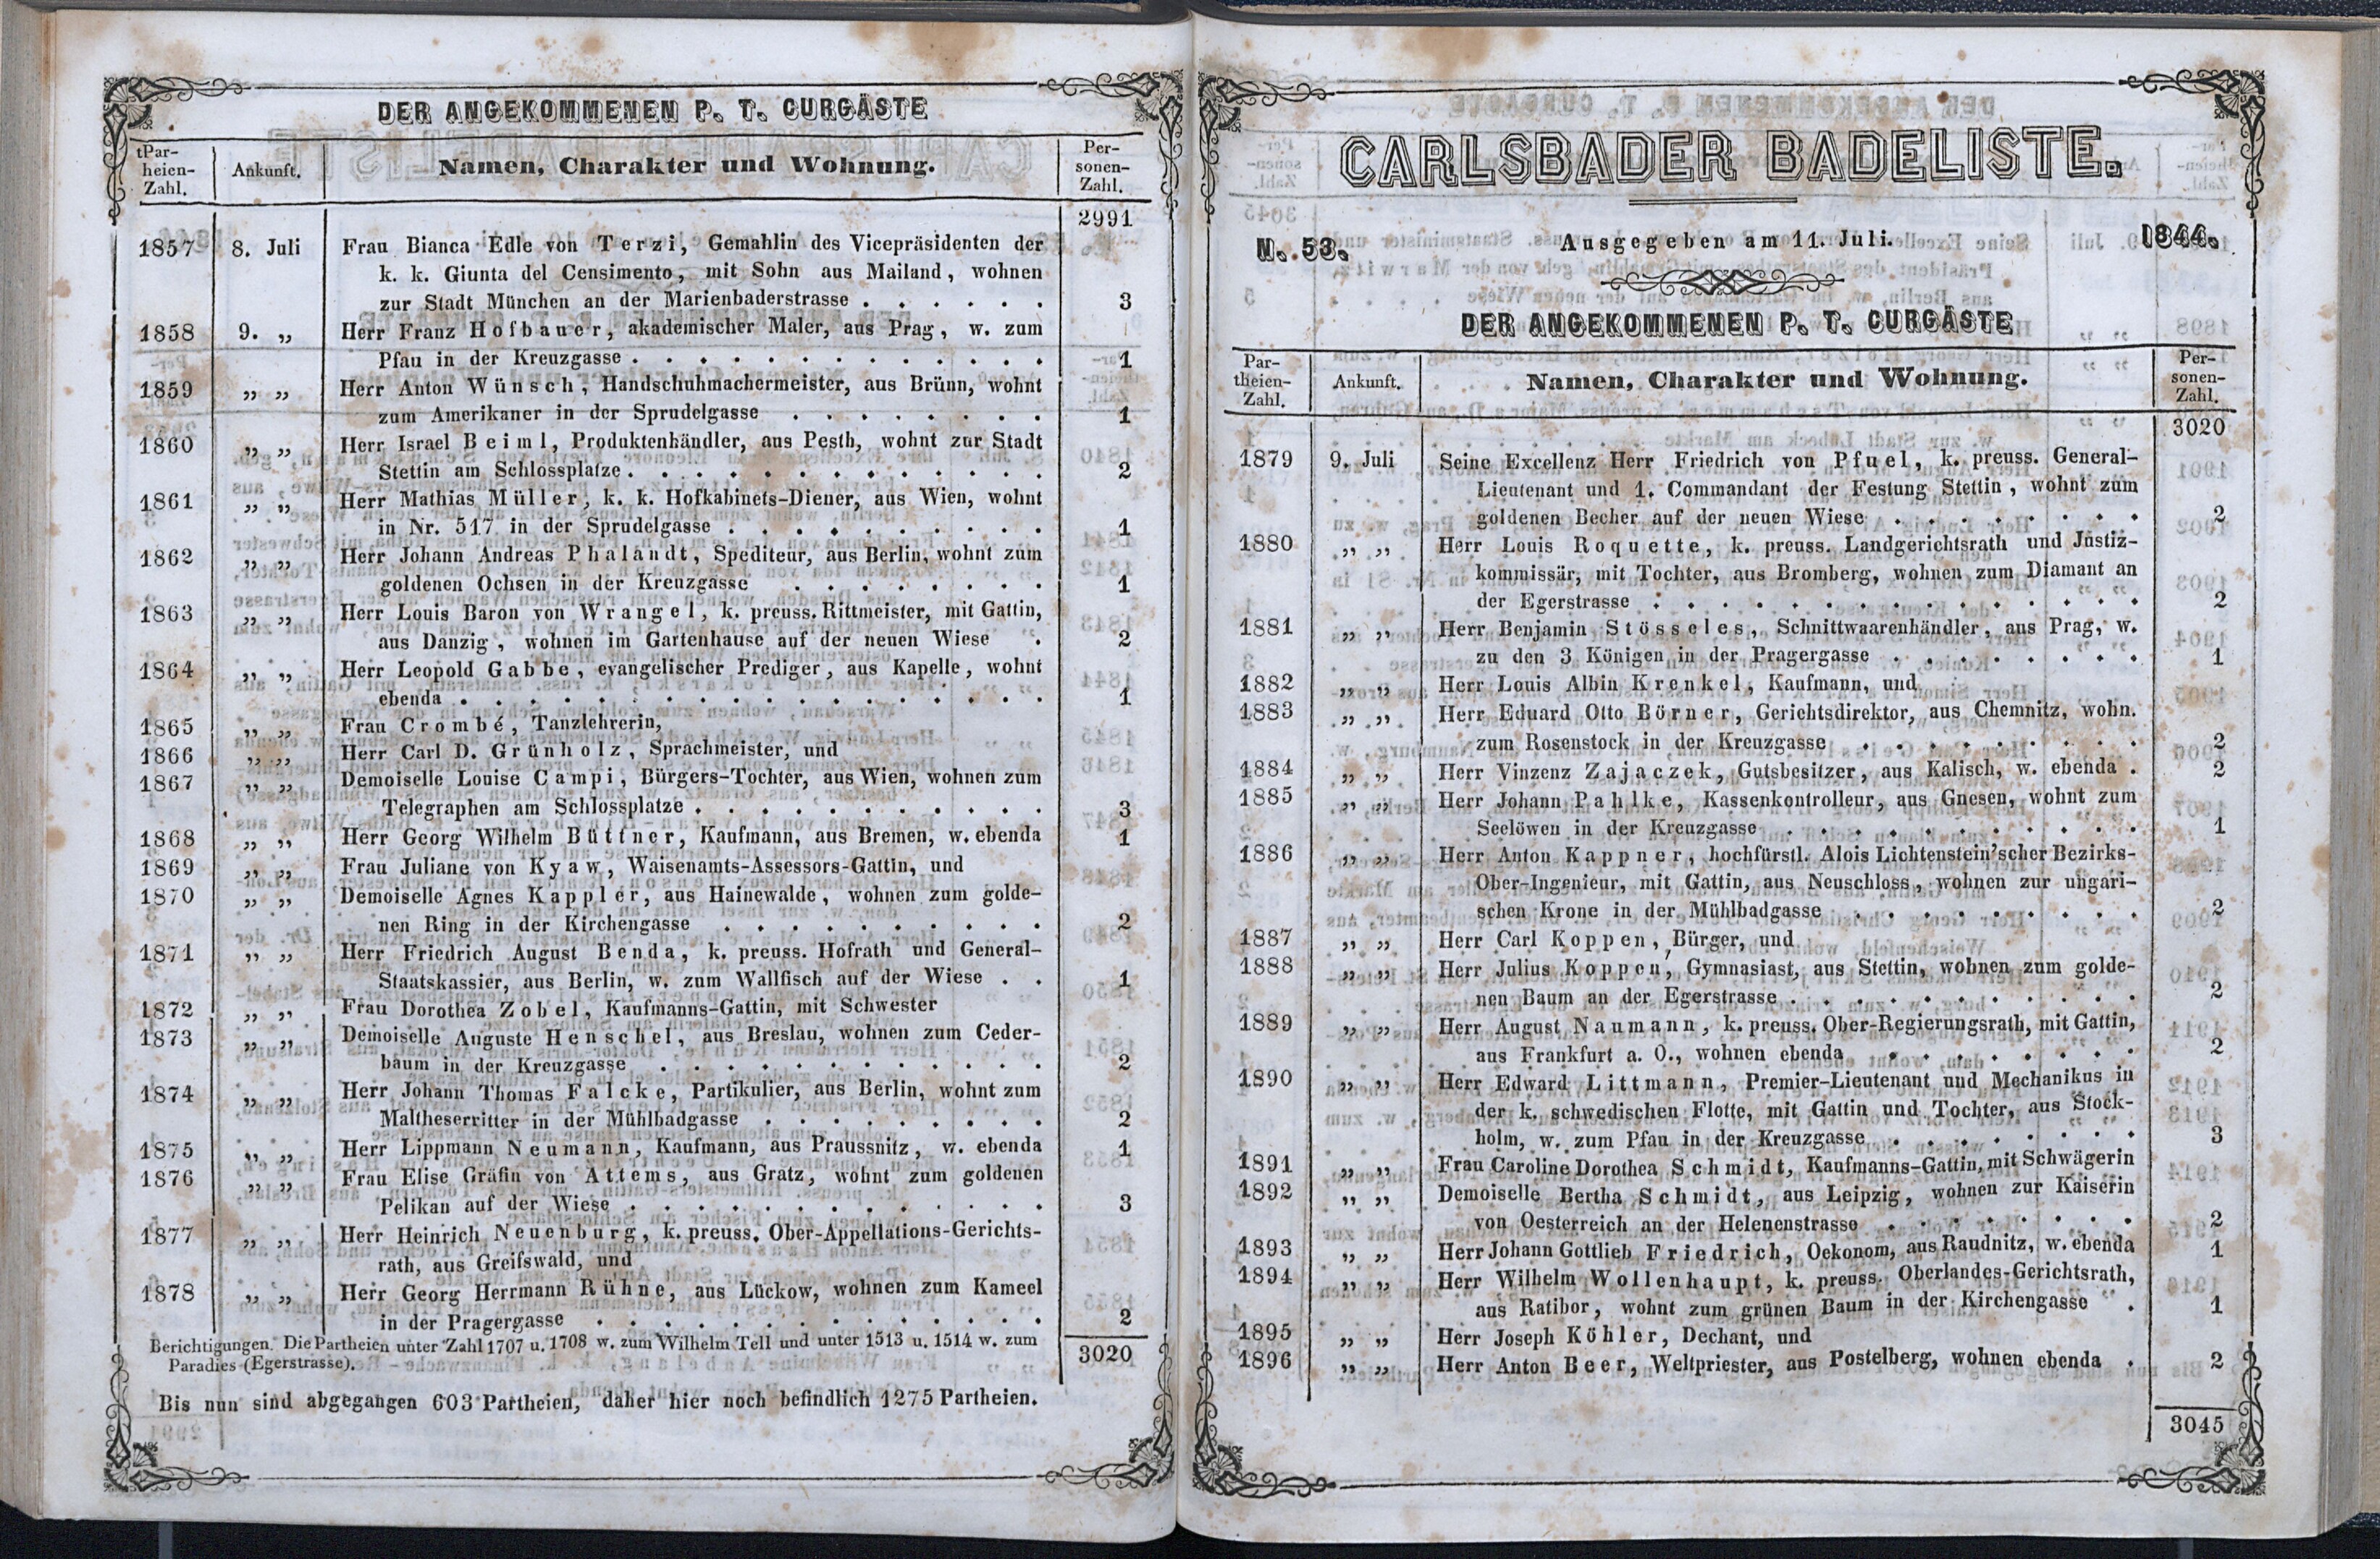 DER ANGEKOMMENEN P. T. CURGÄSTE
tPar-
heien-
Zahl.
Ankunft.
Namen, Charakter und Wohnung.
Per-
sonen-
Zahl.
2991
1857 8. Juli Frau Bianca Edle von Terzi, Gemahlin des Vicepräsidenten der
k. k. Giunta del Censimento, mit Sohn aus Mailand, wohnen
zur Stadt München an der Marienbaderstrasse . . . . . . 3
1858 9. „ Herr Franz Hofbauer, akademischer Maler, aus Prag, w. zum
Pfau in der Kreuzgasse . . . . . . . . . . . . . 1
1859 „ „ Herr Anton Wünsch, Handschuhmachermeister, aus Brünn, wohnt
zum Amerikaner in der Sprudelgasse . . . . . . . . 1
1860 „ „ Herr Israel Beiml, Produktenhändler, aus Pesth, wohnt zur Stadt
Stettin am Schlossplatze . . . . . . . . . . . . . 2
1861 „ „ Herr Mathias Müller, k. k. Hofkabinets-Diener, aus Wien, wohnt
in Nr. 517 in der Sprudelgasse . . . . . . . . . . 1
1862 „ „ Herr Johann Andreas Phalandt, Spediteur, aus Berlin, wohnt zum
goldenen Ochsen in der Kreuzgasse . . . . . . . . . 1
1863 „ „ Herr Louis Baron von Wrangel, k. preuss. Rittmeister, mit Gattin,
aus Danzig, wohnen im Gartenhause auf der neuen Wiese . 2
1864 „ „ Herr Leopold Gabbe, evangelischer Prediger, aus Kapelle, wohnt
ebenda . . . . . . . . . . . . . . . . . . 1
1865 „ „ Frau Crombé, Tanzlehrerin,
1866 „ „ Herr Carl D. Grünholz, Sprachmeister, und
1867 „ „ Demoiselle Louise Campi, Bürgers-Tochter, aus Wien, wohnen zum
Telegraphen am Schlossplatze . . . . . . . . . . . 3
1868 „ „ Herr Georg Wilhelm Büttner, Kaufmann, aus Bremen, w. ebenda 1
1869 „ „ Frau Juliane von Kyaw, Waisenamts-Assessors-Gattin, und
1870 „ „ Demoiselle Agnes Kappler, aus Hainewalde, wohnen zum golde-
nen Ring in der Kirchengasse . . . . . . . . . . 2
1871 „ „ Herr Friedrich August Benda, k. preuss. Hofrath und General-
Staatskassier, aus Berlin, w. zum Wallfisch auf der Wiese . . 1
1872 „ „ Frau Dorothea Zobel, Kaufmanns-Gattin, mit Schwester
1873 „ „ Demoiselle Auguste Henschel, aus Breslau, wohnen zum Ceder-
baum in der Kreuzgasse . . . . . . . . . . . . 2
1874 „ „ Herr Johann Thomas Falcke, Partikulier, aus Berlin, wohnt zum
Maltheserritter in der Mühlbadgasse . . . . . . . . . 2
1875 „ „ Herr Lippmann Neumann, Kaufmann, aus Praussnitz, w. ebenda 1
1876 „ „ Frau Elise Gräfin von Attems, aus Gratz, wohnt zum goldenen
Pelikan auf der Wiese . . . . . . . . . . . . . 3
1877 „ „ Herr Heinrich Neuenburg, k. preuss. Ober-Appellations-Gerichts-
rath, aus Greifswald, und
1878 „ „ Herr Georg Herrmann Rühne, aus Lückow, wohnen zum Kameel
in der Pragergasse . . . . . . . . . . . . . . 2
Berichtigungen. Die Partheien unter Zahl 1707 u. 1708 w. zum Wilhelm Tell und unter 1513 u. 1514 w. zum
Paradies (Egerstrasse).
3020
Bis nun sind abgegangen 603 Partheien, daher hier noch befindlich 1275 Partheien.
CARLSBADER BADELISTE.
N. 53. Ausgegeben am 11. Juli. 1844.
DER ANGEKOMMENEN P. T. CURGÄSTE
Par-
theien-
Zahl.
Ankunft.
Namen, Charakter und Wohnung.
Per-
sonen-
Zahl.
3020
1879 9. Juli Seine Excellenz Herr Friedrich von Pfuel, k. preuss. General-
Lieutenant und 1. Commandant der Festung Stettin, wohnt zum
goldenen Becher auf der neuen Wiese . . . . . . . . 2
1880 „ „ Herr Louis Roquette, k. preuss. Landgerichtsrath und Justiz-
kommissär, mit Tochter, aus Bromberg, wohnen zum Diamant an
der Egerstrasse . . . . . . . . . . . . . . . 2
1881 „ „ Herr Benjamin Stösseles, Schnittwaarenhändler, aus Prag, w.
zu den 3 Königen in der Pragergasse . . . . . . . . 1
1882 „ „ Herr Louis Albin Krenkel, Kaufmann, und
1883 „ „ Herr Eduard Otto Börner, Gerichtsdirektor, aus Chemnitz, wohn.
zum Rosenstock in der Kreuzgasse . . . . . . . . . 2
1884 „ „ Herr Vinzenz Zajaczek, Gutsbesitzer, aus Kalisch, w. ebenda . 2
1885 „ „ Herr Johann Pahlke, Kassenkontrolleur, aus Gnesen, wohnt zum
Seelöwen in der Kreuzgasse . . . . . . . . . . . 1
1886 „ „ Herr Anton Kappner, hochfürstl. Alois Lichtenstein'scher Bezirks-
Ober-Ingenieur, mit Gattin, aus Neuschloss, wohnen zur ungari-
schen Krone in der Mühlbadgasse . . . . . . . . . 2
1887 „ „ Herr Carl Koppen, Bürger, und
1888 „ „ Herr Julius Koppen, Gymnasiast, aus Stettin, wohnen zum golde-
nen Baum an der Egerstrasse . . . . . . . . . . . 2
1889 „ „ Herr August Naumann, k. preuss. Ober-Regierungsrath, mit Gattin,
aus Frankfurt a. O., wohnen ebenda . . . . . . . . 2
1890 „ „ Herr Edward Littmann, Premier-Lieutenant und Mechanikus in
der k. schwedischen Flotte, mit Gattin und Tochter, aus Stock-
holm, w. zum Pfau in der Kreuzgasse . . . . . . . . 3
1891 „ „ Frau Caroline Dorothea Schmidt, Kaufmanns-Gattin, mit Schwägerin
1892 „ „ Demoiselle Bertha Schmidt, aus Leipzig, wohnen zur Kaiserin
von Oesterreich an der Helenenstrasse . . . . . . . . 2
1893 „ „ Herr Johann Gottlieb Friedrich, Oekonom, aus Raudnitz, w. ebenda 1
1894 „ „ Herr Wilhelm Wollenhaupt, k. preuss. Oberlandes-Gerichtsrath,
aus Ratibor, wohnt zum grünen Baum in der Kirchengasse . 1
1895 „ „ Herr Joseph Köhler, Dechant, und
1896 „ „ Herr Anton Beer, Weltpriester, aus Postelberg, wohnen ebenda . 2
3045